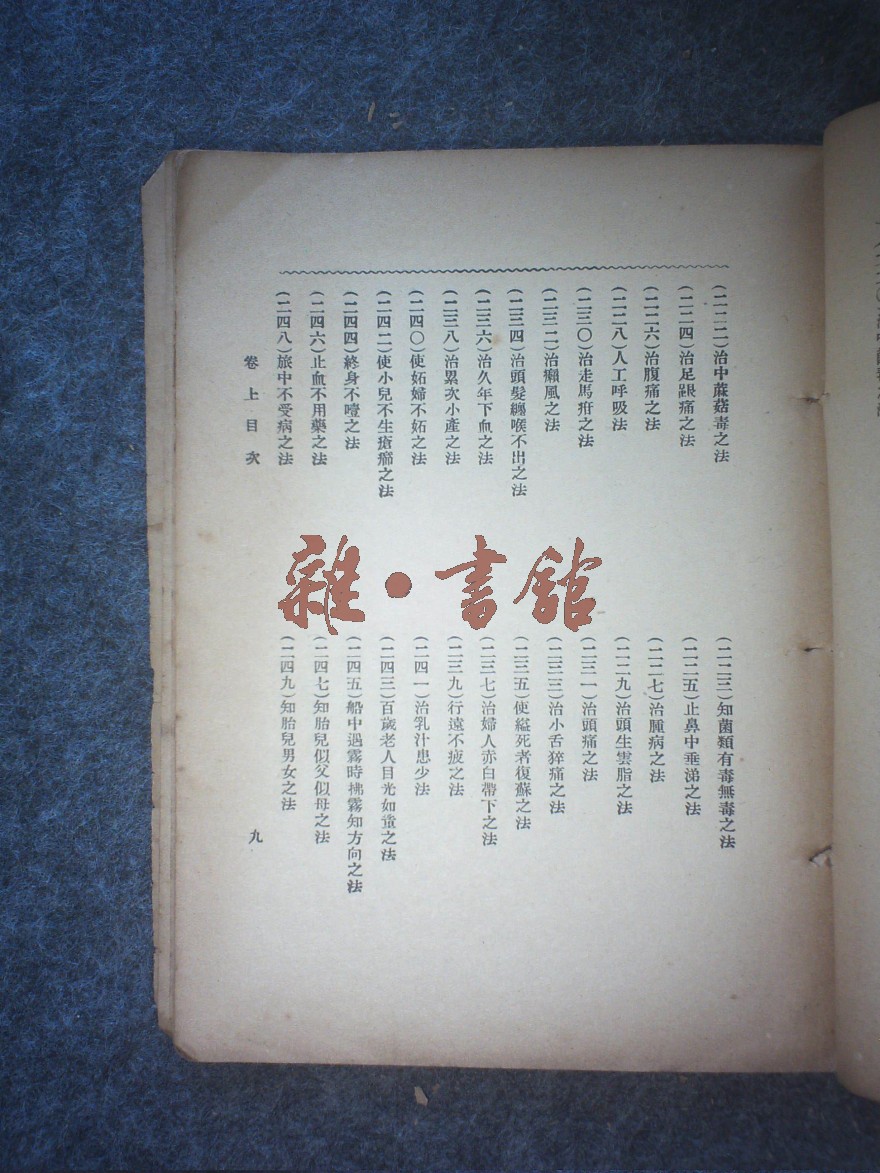 (二二二)治中蕈菇毒之法
(二二三)知菌類有毒無毒之法
(二二四)治足跟痛之法
(二二五)止鼻中垂涕之法
(二二六)治腹痛之法
(二二七)治腫病之法
(二二八)人工呼吸法
(二二九)治頭生雲脂之法
(二三〇)治走馬疳之法
(二三一)治頭痛之法
(二三二)治癩風之法
(二三三)治小舌猝痛之法
(二三四)治頭髮纏喉不出之法
(二三五)使縊死者復蘇之法
(二三六)治久年下血之法
(二三七)治婦人赤白帶下之法
(二三八)治累次小產之法
(二三九)行遠不疲之法
(二四〇)使妬婦不妬之法
(二四一)治乳汁患少法
(二四二)使小兒不生瘡癤之法
(二四三)百歲老人目光如童之法
(二四四)終身不噎之法
(二四五)船中遇霧時拂霧知方向之法
(二四六)止血不用藥之法
(二四七)知胎兒似父似母之法
(二四八)旅中不受病之法
(二四九)知胎兒男女之法
卷上目次
九
雜·書館